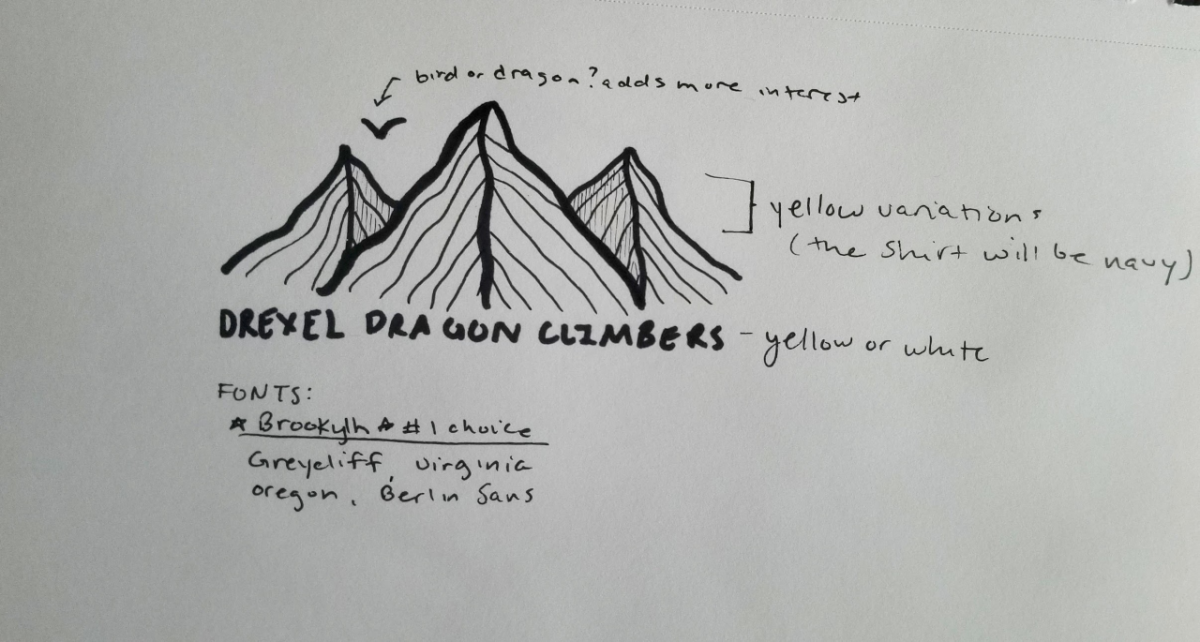 bird or dragon? adds more interest
yellow variations
(the shirt will be navy)
DREXEL DRAGON CLIMBERS - yellow or white
FONTS:
☆ Brookylh ☆ #1 choice
Greycliff, virginia
oregon, Berlin Sans